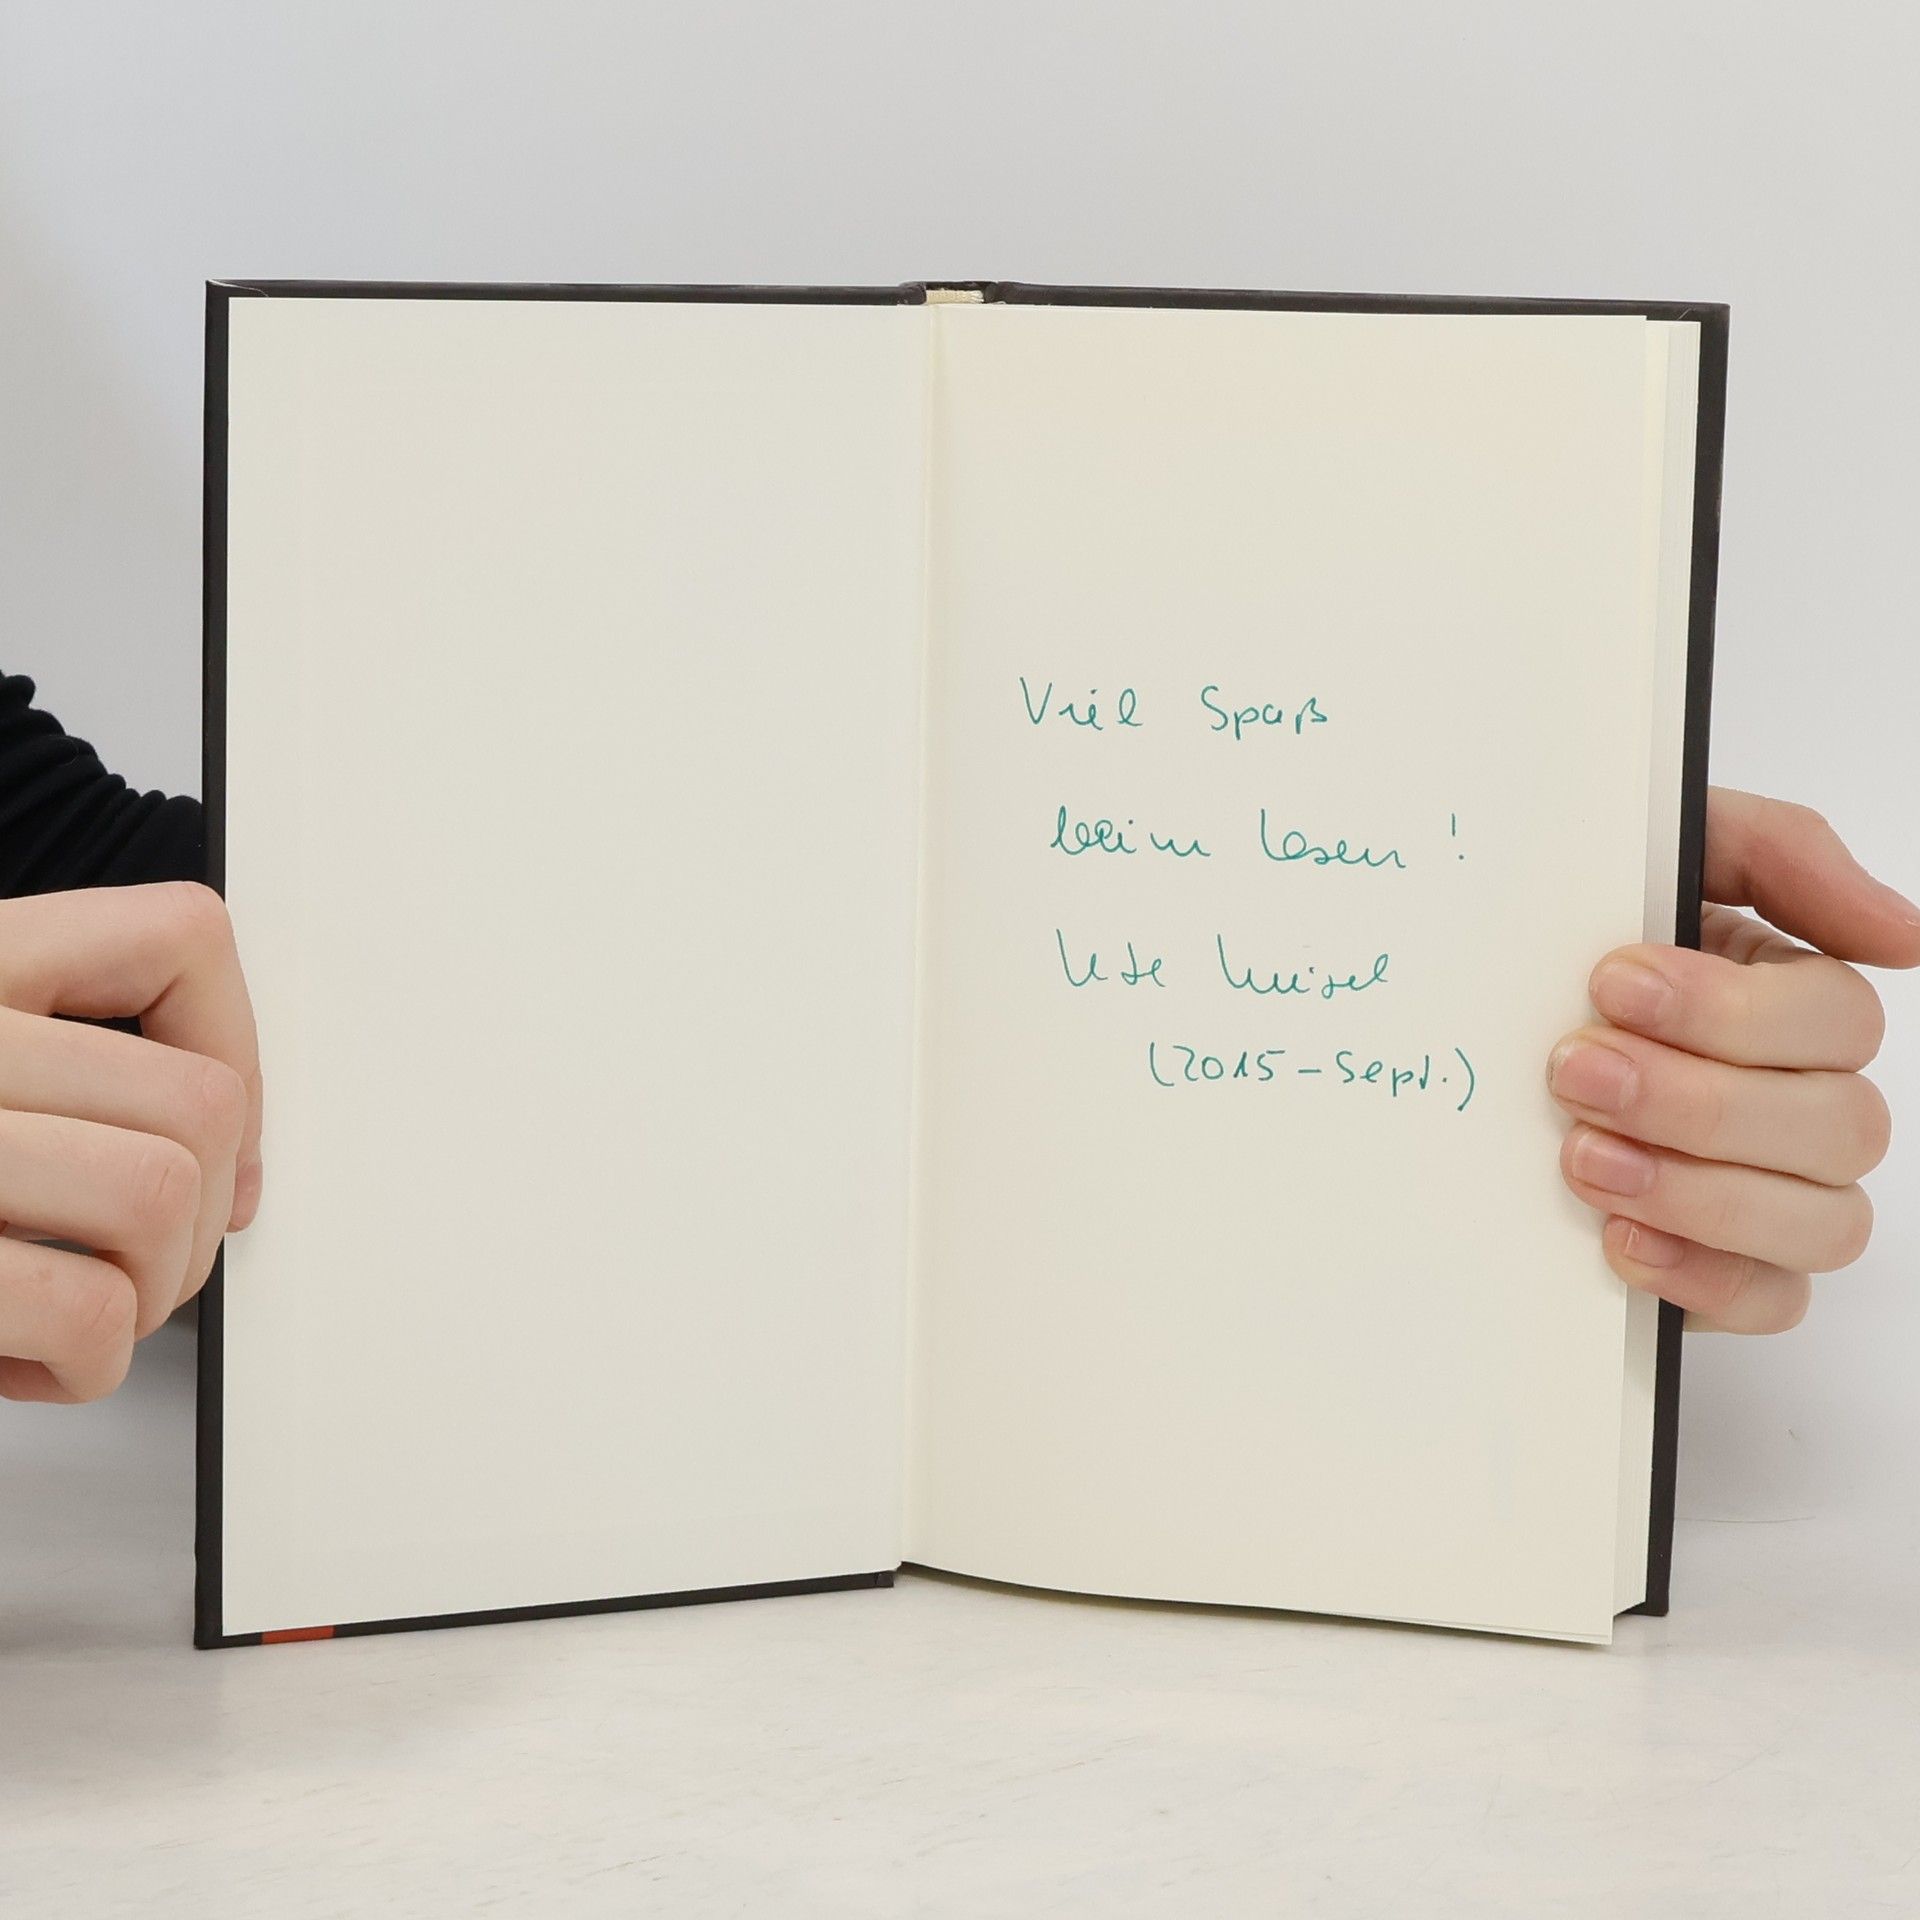 Viel Spaß
beim Lesen!
Ute
(2015-Sept.)